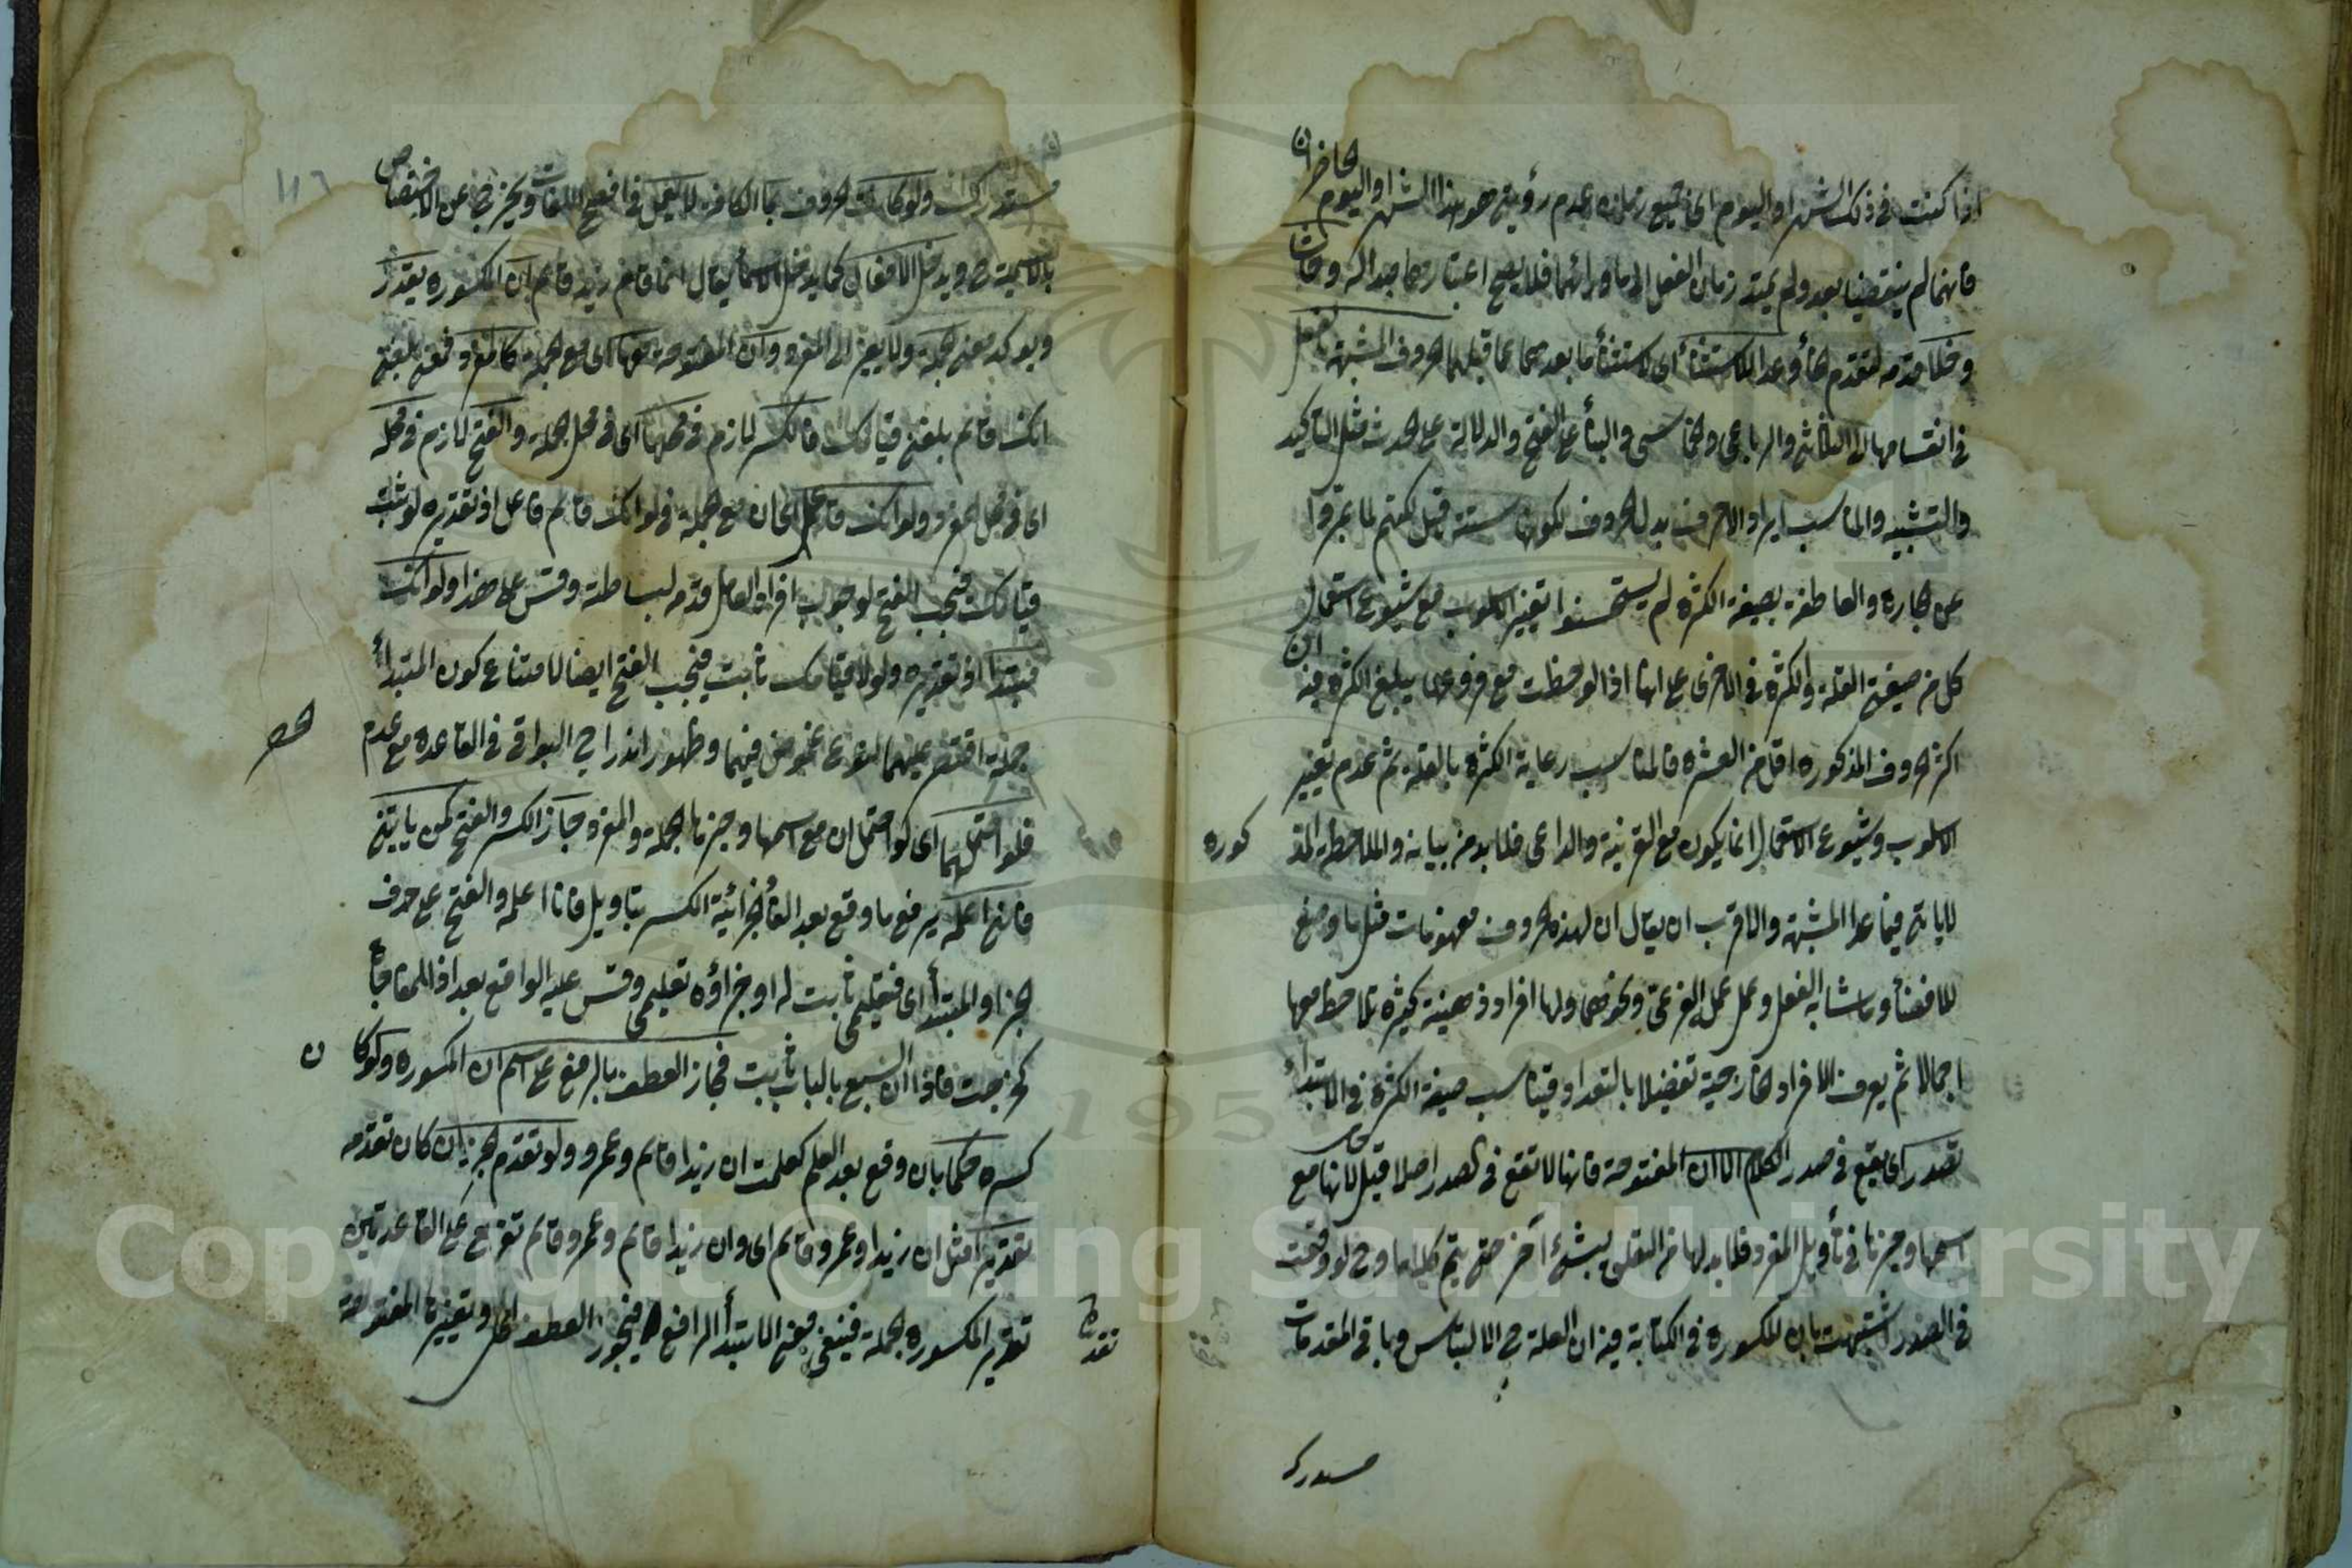 الحاضران
اذا كنت فى ذلك الشهر او اليوم اى جميع زمان عدم رؤيتى هو هذا الشهر او اليوم
فانهما لم ينقضيا بعد ولم يمتد زمان الفعل الى ما ورائهما فلا يصح اعتبارهما مبدأ له وحاشا
وخلا قدمه لتقدم الحاء وعدا للاستثناء اى لاستثناء ما بعدها عما قبلها الحروف المشبهة بالفعل
فى انقسامها الى الثلاثى والرباعى والخماسى والبناء على الفتح والدلالة على الحدث مثل التأكيد
والتشبيه والمناسب ايراد الاحرف بدل الحروف لكونها ستة قيل لكنهم لما عبروا
عن الجارة والعاطفة بصيغة الكثرة لم يستحسنوا تغيير الاسلوب مع شيوع استعمال
كل من صيغتى القلة والكثرة فى الاخرى على انها اذا لوحظت مع فروعها يبلغ الكثرة فيه ان
اكثر الحروف المذكورة اقل من العشرة فالمناسب رعاية الكثرة بالقلة ثم عدم تغيير
الاسلوب وشيوع الاستعمال انما يكون مع القرينة والداعى فلا بد من بيانه والملاحظة المذكورة
لا يأتى فيما عدا المشبهة والاقرب ان يقال ان لهذه الحروف مفهومات مثل ما وضع
للافضاء وما شابه الفعل وعمل عمل الفرعى ونحوهما ولها افراد ذهنية كثيرة تلاحظ معها
اجمالا ثم يعرف الافراد الخارجية تفصيلا بالتعداد فيناسب صيغة الكثرة فى الابتداء
تصدر اى يقع فى صدر الكلام الا ان المفتوحة فانها لا تقع فى الصدر اصلا قيل لانها مع
اسمها وخبرها فى تأويل المفرد فلا بد لها من التعلق بشئ آخر حتى يتم كلاما وح لو وقعت
فى الصدر اشتبهت بان المكسورة فى الكتابة فيه ان العلة ح الالتباس وباقى المقدمات
مستدرك
١١٦
مستدركة ولو كانت الحروف بما الكافة لا يعمل فى افصح اللغات ويخرج عن الاختصاص
بالاسمية ح ويدخل الافعال كما يدخل الاسماء يقال انما قام زيد قائم ان المكسورة يقرر
ويؤكد معنى الجملة ولا يغير الى المفرد وان المفتوحة معها اى مع الجملة كالمفرد فمعنى بلغنى
انك قائم بلغنى قيامك فالكسر لازم فى محلها اى فى محل الجملة والفتح لازم فى محله
اى فى محل المفرد ولو انك فاعل اى ان مع الجملة فى لو انك قائم فاعل اذ تقديره لو ثبت
قيامك فيجب الفتح لوجوب افراد الفاعل قدمه لبساطته وقس على هذا ولولا انك
مبتدأ اذ تقديره ولولا قيامك ثابت فيجب الفتح ايضا لامتناع كون المبتدأ
جملة اقتصر عليهما لنوع غموض فيهما وظهور اندراج البواقى فى القاعدة مع عدم الحصر
فلو احتملهما اى لو احتمل ان مع اسمها وخبرها الجملة والمفرد جاز الكسر والفتح كمن يأتينى
فانى اعلمه يرفع ما وقع بعد الفاء الجزائية الكسر بتأويل فانا اعلمه والفتح على حذف
الجزاء والمبتدأ اى فتعليمى ثابت له او جزاؤه تعليمى وقس عليه الواقع بعد اذا المفاجأة
كخرجت فاذا ان السبع بالباب ثابت فجاز العطف بالرفع على اسم ان المكسورة ولو كان
كسره حكما بان وقع بعد العلم كعلمت ان زيدا قائم وعمرو ولو تقدم الخبر ان كان تقدمه
تقديرا مثل ان زيدا وعمرو قائم اى وان زيدا قائم وعمرو قائم تفريع على القاعدتين
تقرير المكسورة الجملة فينبغى معنى الابتداء الرافع فيجوز العطف المحل وتغيير المفتوحة
Copyright © King Saud University
1957